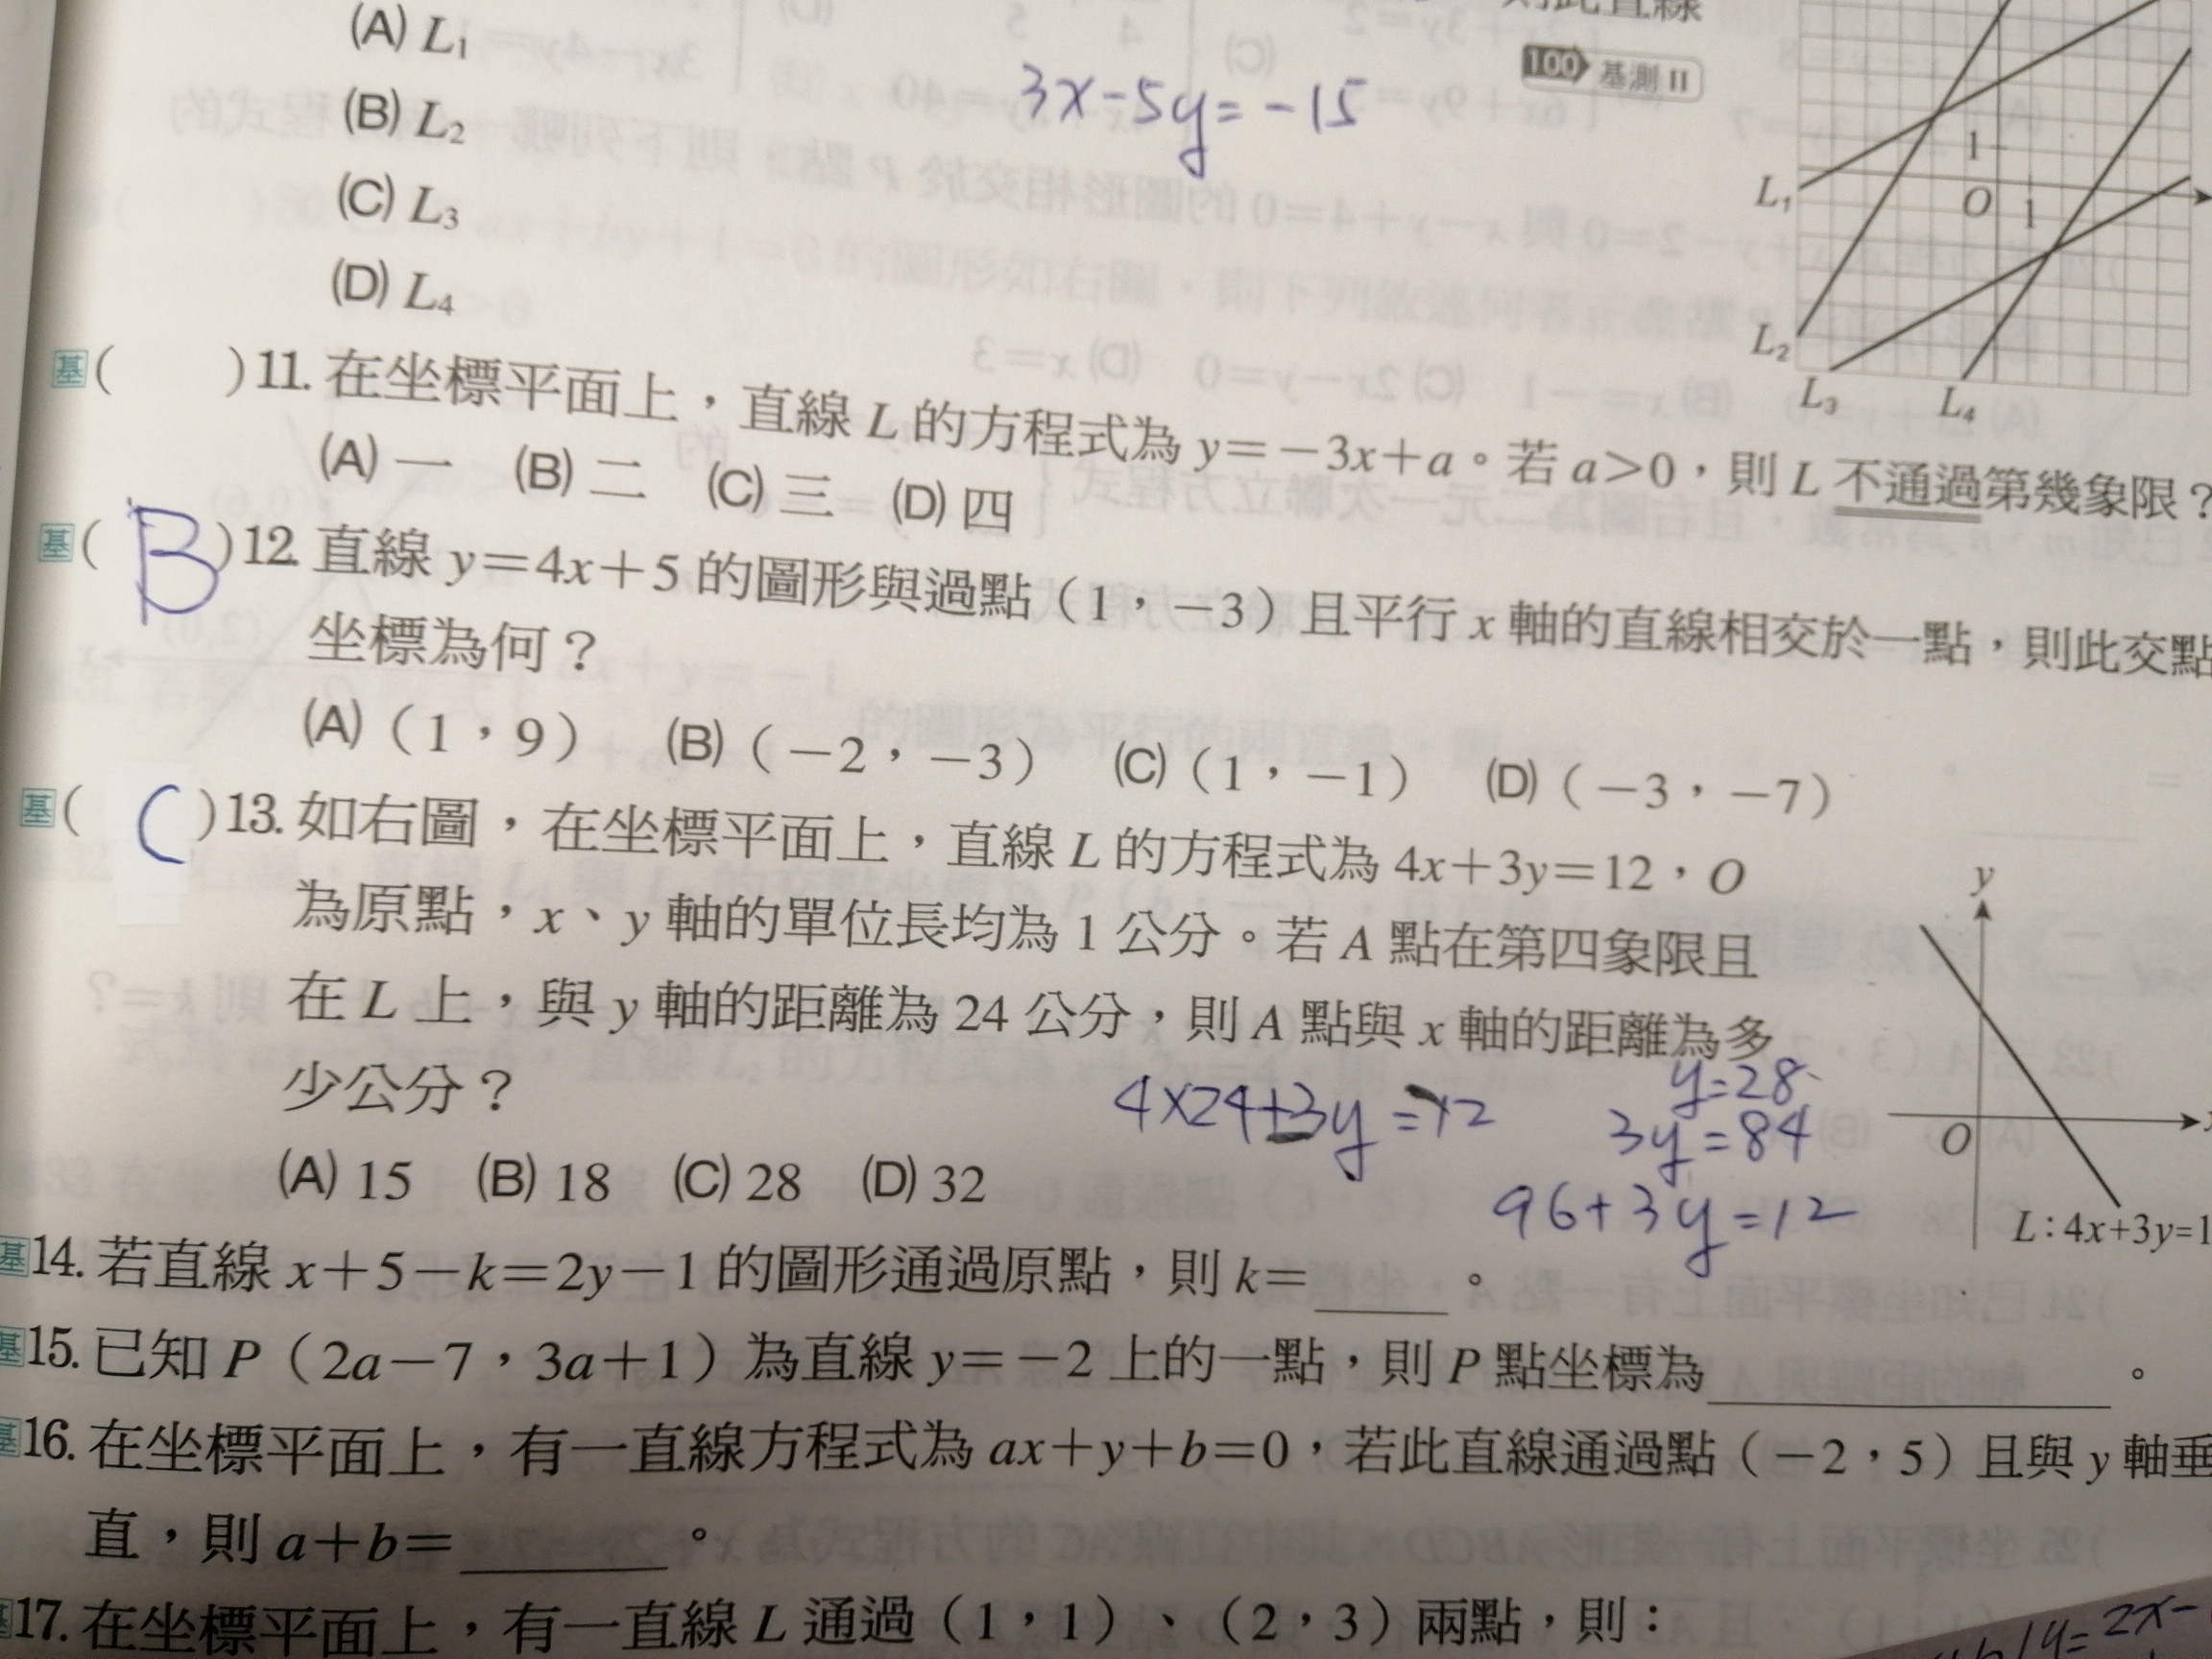 則此直線
(A) L1
100 基測 II
3x-5y=-15
(B) L2
(C) L3
(D) L4
1
O
1
L1
L2
L3
L4
基( )11. 在坐標平面上，直線 L 的方程式為 y=-3x+a。若 a>0，則 L 不通過第幾象限？
(A) 一 (B) 二 (C) 三 (D) 四
基( B )12. 直線 y=4x+5 的圖形與過點（1，-3）且平行 x 軸的直線相交於一點，則此交點
坐標為何？
(A)（1，9） (B)（-2，-3） (C)（1，-1） (D)（-3，-7）
基( C )13. 如右圖，在坐標平面上，直線 L 的方程式為 4x+3y=12，O
為原點，x、y 軸的單位長均為 1 公分。若 A 點在第四象限且
在 L 上，與 y 軸的距離為 24 公分，則 A 點與 x 軸的距離為多
少公分？
4x24+3y=12
y=28
3y=84
96+3y=12
(A) 15 (B) 18 (C) 28 (D) 32
y
O
L:4x+3y=1
基14. 若直線 x+5-k=2y-1 的圖形通過原點，則 k=____。
基15. 已知 P（2a-7，3a+1）為直線 y=-2 上的一點，則 P 點坐標為____。
基16. 在坐標平面上，有一直線方程式為 ax+y+b=0，若此直線通過點（-2，5）且與 y 軸垂
直，則 a+b=____。
基17. 在坐標平面上，有一直線 L 通過（1，1）、（2，3）兩點，則：
y=2x-